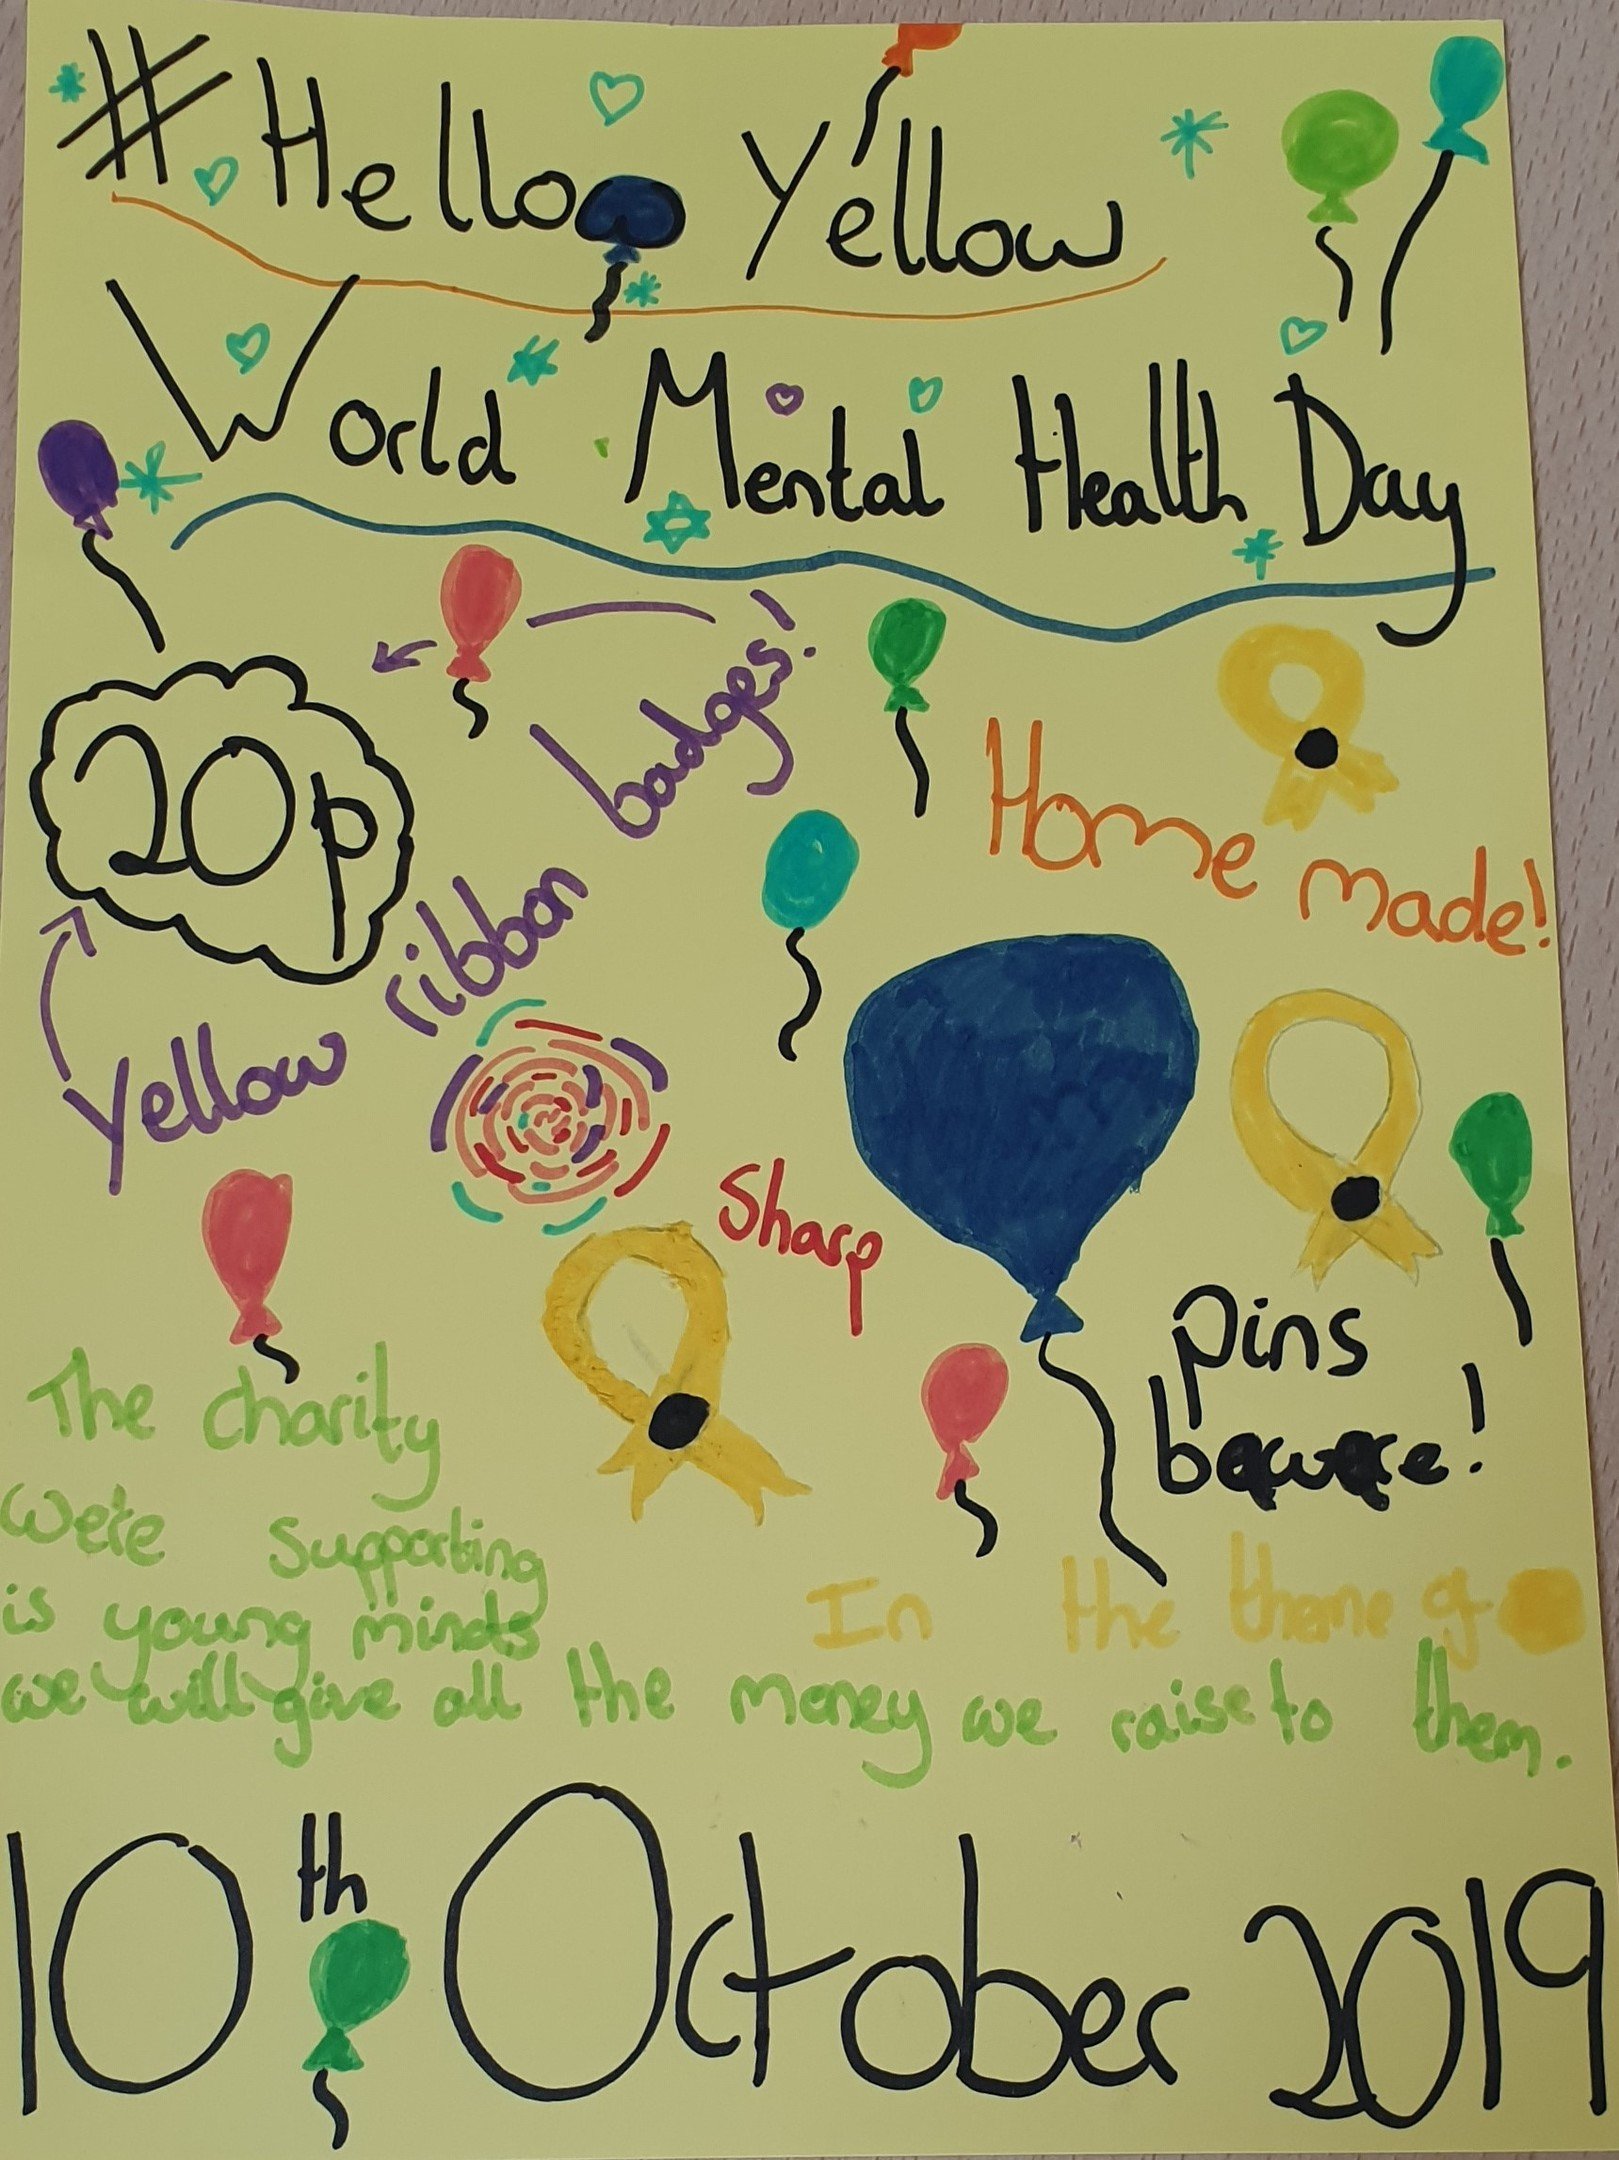 #Hello Yellow
World Mental Health Day
20p
Yellow ribbon badges!
Home made!
Sharp
pins
beware!
The charity
we're supporting
is young minds
In the theme of
we will give all the money we raise to them.
10th October 2019